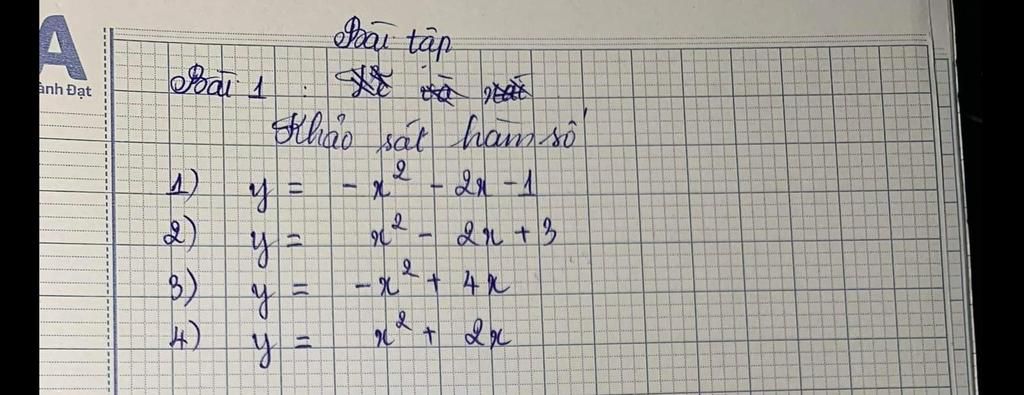 A
ành Đạt
Bài tập
Bài 1 :
Khảo sát hàm số
1) y = -x² - 2x - 1
2) y = x² - 2x + 3
3) y = -x² + 4x
4) y = x² + 2x